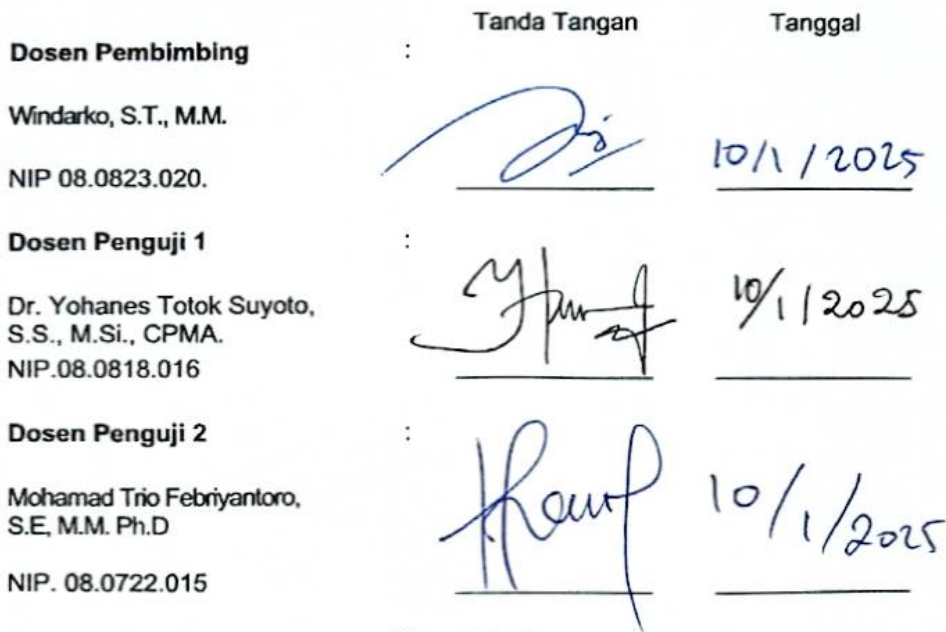 Tanda Tangan Tanggal
Dosen Pembimbing :
Windarko, S.T., M.M.
NIP 08.0823.020. 10/1/2025
Dosen Penguji 1 :
Dr. Yohanes Totok Suyoto,
S.S., M.Si., CPMA. 10/1/2025
NIP.08.0818.016
Dosen Penguji 2 :
Mohamad Trio Febriyantoro,
S.E, M.M. Ph.D 10/1/2025
NIP. 08.0722.015